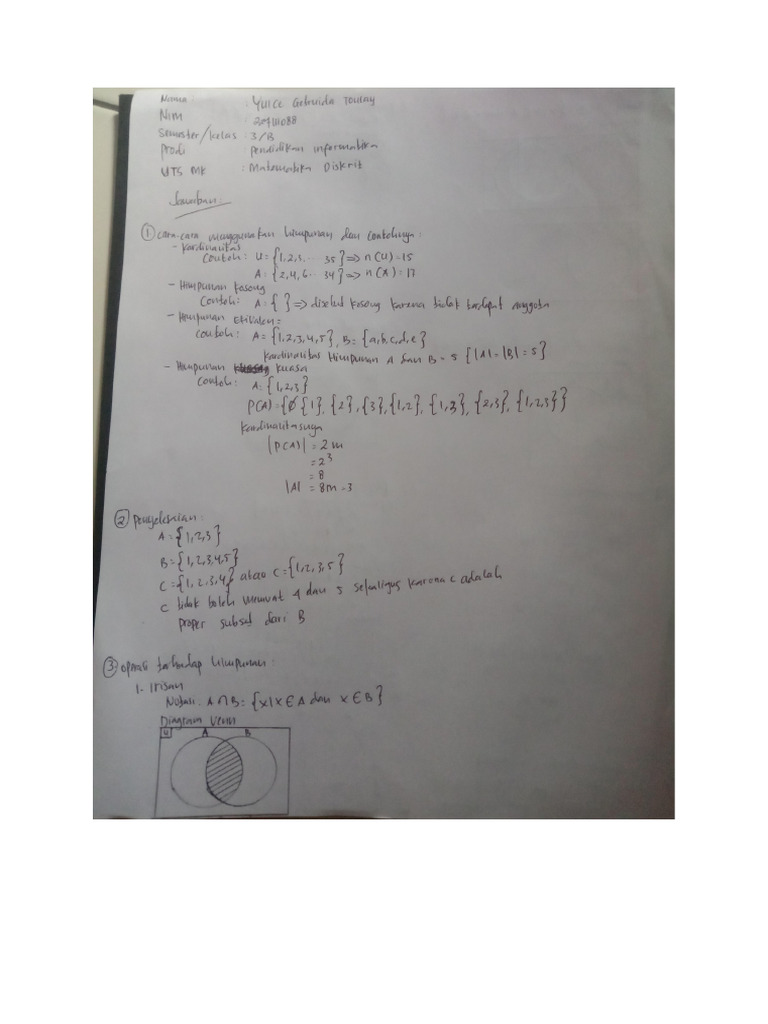 Nama : Yulce Getruida Toulay
Nim : 20411088
Semester/kelas : 3/B
Prodi : Pendidikan informatika
UTS MK : Matematika Diskrit
Jawaban :
① Cara-cara menggunakan himpunan dan contohnya :
- Kardinalitas
Contoh : U = {1,2,3.. 35} => n(U) = 15
A = {2,4,6.. 34} => n(A) = 17
- Himpunan kosong
Contoh : A = { } => disebut kosong karena tidak terdapat anggota
- Himpunan Ekivalen =
Contoh : A = {1,2,3,4,5}, B = {a,b,c,d,e}
Kardinalitas Himpunan A dan B = 5 [|A| = |B| = 5}
- Himpunan kuasa
Contoh : A = {1,2,3}
P(A) = {∅ {1}, {2}, {3}, {1,2}, {1,3}, {2,3}, {1,2,3}}
Kardinalitasnya
|P(A)| = 2m
= 2³
= 8
|A| = 8m - 3
② Penyelesaian :
A = {1,2,3}
B = {1,2,3,4,5}
C = {1,2,3,4} atau C = {1,2,3,5}
C tidak boleh memuat 4 dan 5 sekaligus karena C adalah
proper subset dari B
③ Operasi terhadap himpunan :
1. Irisan
Notasi : A ∩ B = {x|x ∈ A dan x ∈ B}
Diagram Venn
U A B